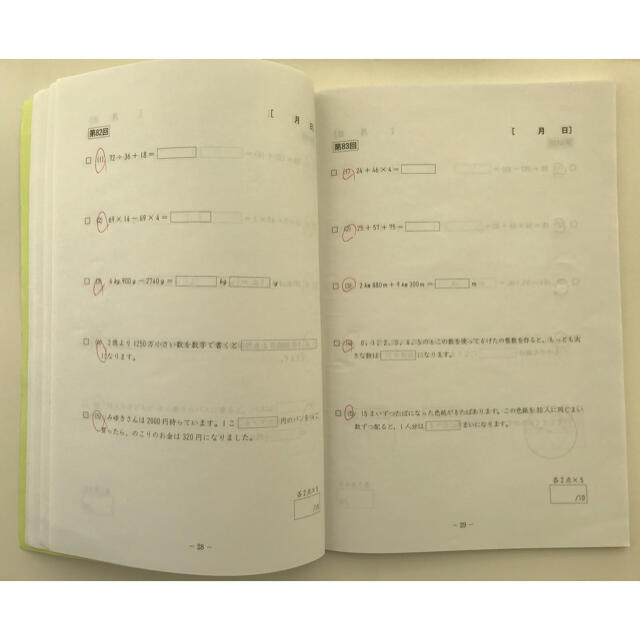 [　月　日]
第82回
□ (1) 72÷36+18=
□ (2) 69×14-69×4=
□ (3) 4kg 900g-2740g= kg g
より1250万小さい数を数字で書くと
になります。
□ (5) みゆきさんは2000円持っています。1こ 円のパンを
買ったら、のこりのお金は320円になりました。
各2点×5
/10
- 28 -
[　月　日]
第83回
□ (1) 24+46×4=
□ (2) 25+57+75=
□ (3) 2km 880m+4km 300m= m
□ (4) この数を使って けたの整数を作ると、もっとも大
きな数は になります。
□ (5) 15まいずつたばになった色紙が たばあります。この色紙を 人に同じまい
数ずつ配ると、1人分は まいになります。
各2点×5
/10
- 29 -